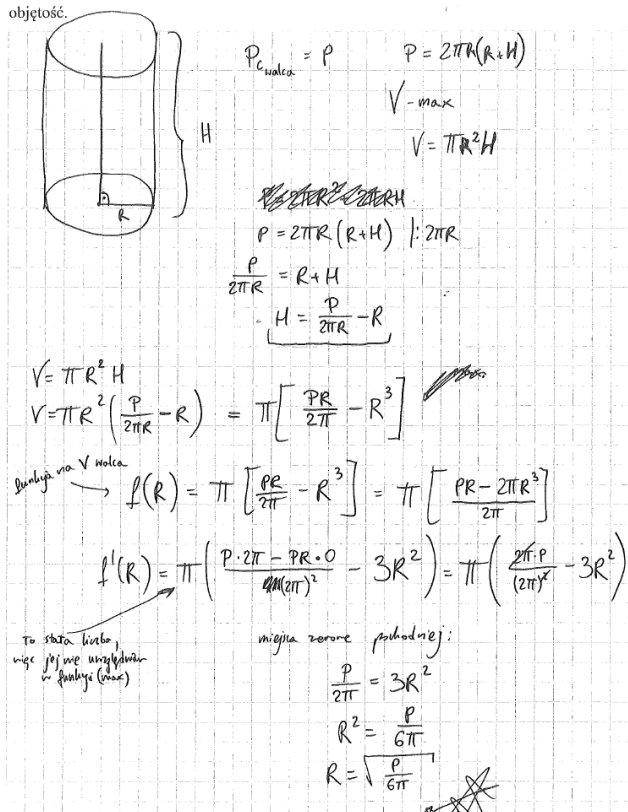 objętość.
P_c walca = P    P = 2πR(R+H)
V - max
V = πR²H
H
R
P = 2πR(R+H) |: 2πR
P/(2πR) = R+H
H = P/(2πR) - R
V = πR² H
V = πR² (P/(2πR) - R) = π[PR/(2π) - R³]
funkcja na V walca
f(R) = π[PR/(2π) - R³] = π[(PR - 2πR³)/(2π)]
f'(R) = π((P·2π - PR·0)/(2π)² - 3R²) = π((2π·P)/(2π)² - 3R²)
To stała liczba,
więc jej nie uwzględniam
w funkcji (max)
miejsca zerowe pochodnej:
P/(2π) = 3R²
R² = P/(6π)
R = √(P/(6π))